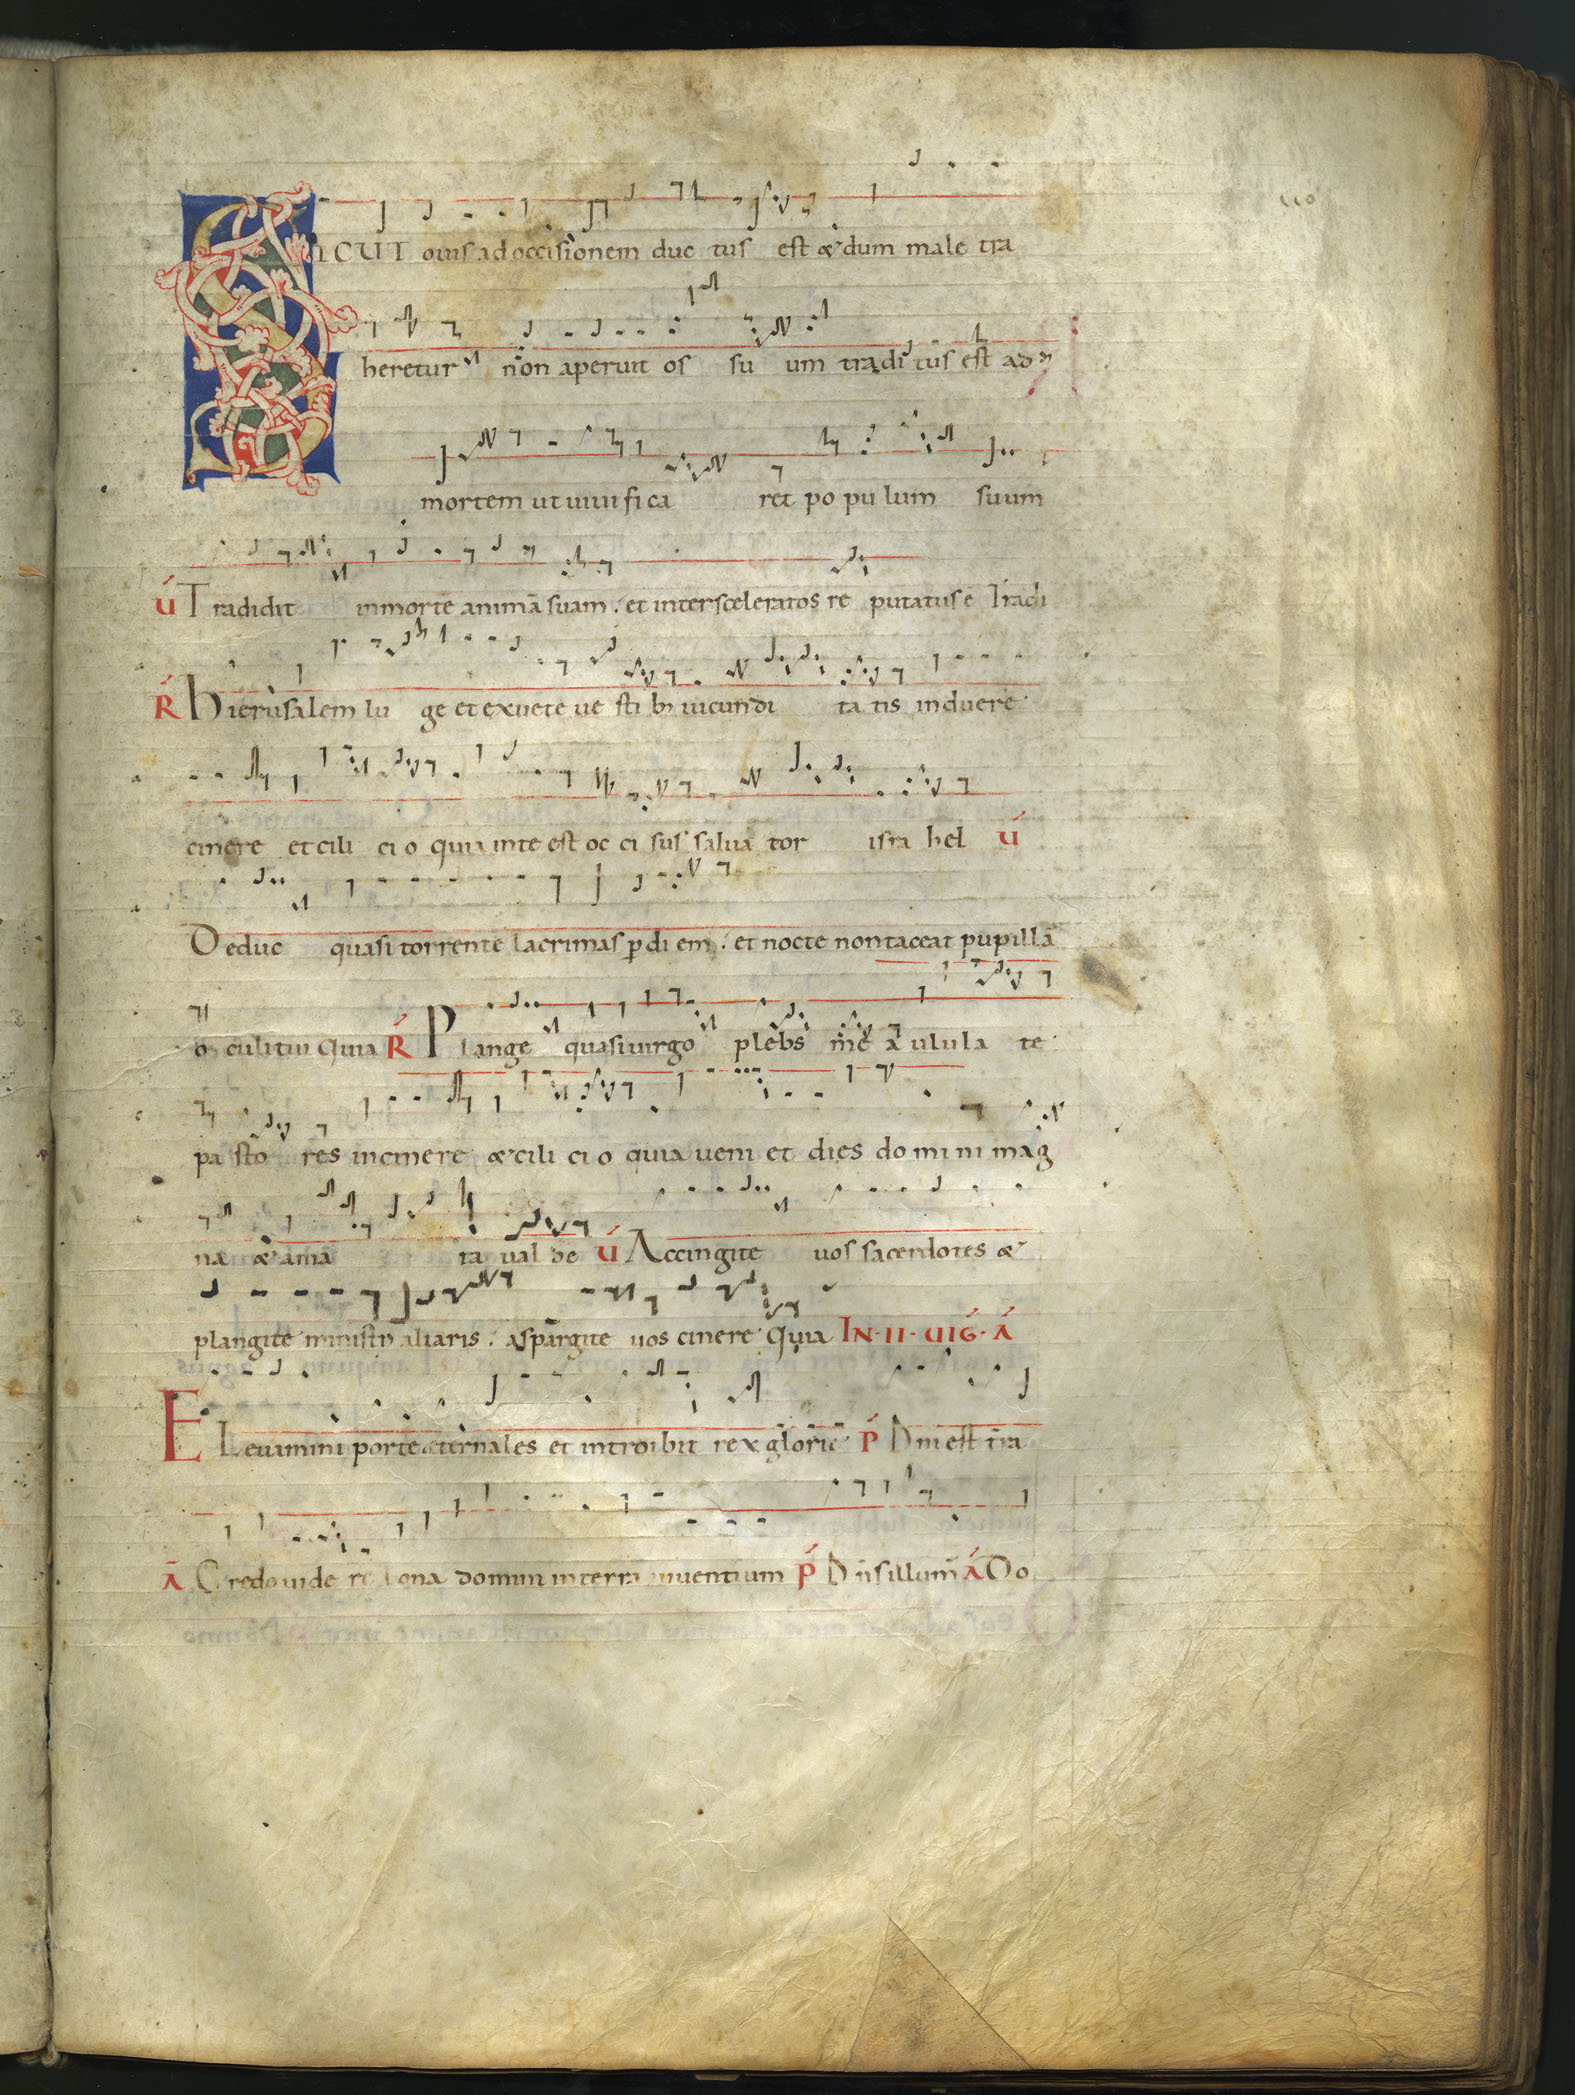 110
SICUT ouis ad occisionem duc tus est & dum male tra
heretur non aperuit os su um tradi tus est ad
mortem ut uiuifica ret po pu lum suum
V́ Tradidit inmorte animā suam . et inter sceleratos re putatus ē Tradi
Ŕ hierusalem lu ge et exuete ue sti b; iucundi ta tis induere
cinere et cili ci o quia inte est oc ci sus salua tor isra hel V́
Deduc quasi torrente lacrimas p di em . et nocte non taceat pupilla
o culi tui Quia Ŕ Plange quasi uirgo plebs me a ulula te
pa sto res incinere & cili ci o quia ueni et dies do mi ni mag
na & ama ra ual de V́ Accingite uos sacerdotes &
plangite ministri altaris . aspargite uos cinere Quia IN · II · UIǴ · Á
ELeuamini porte eternales et introibit rex glorie Ṕ Dn̄i est t̄ra
Ā Credo uide re bona domini interra uiuentium Ṕ Dn̄s illum̄ Á Do